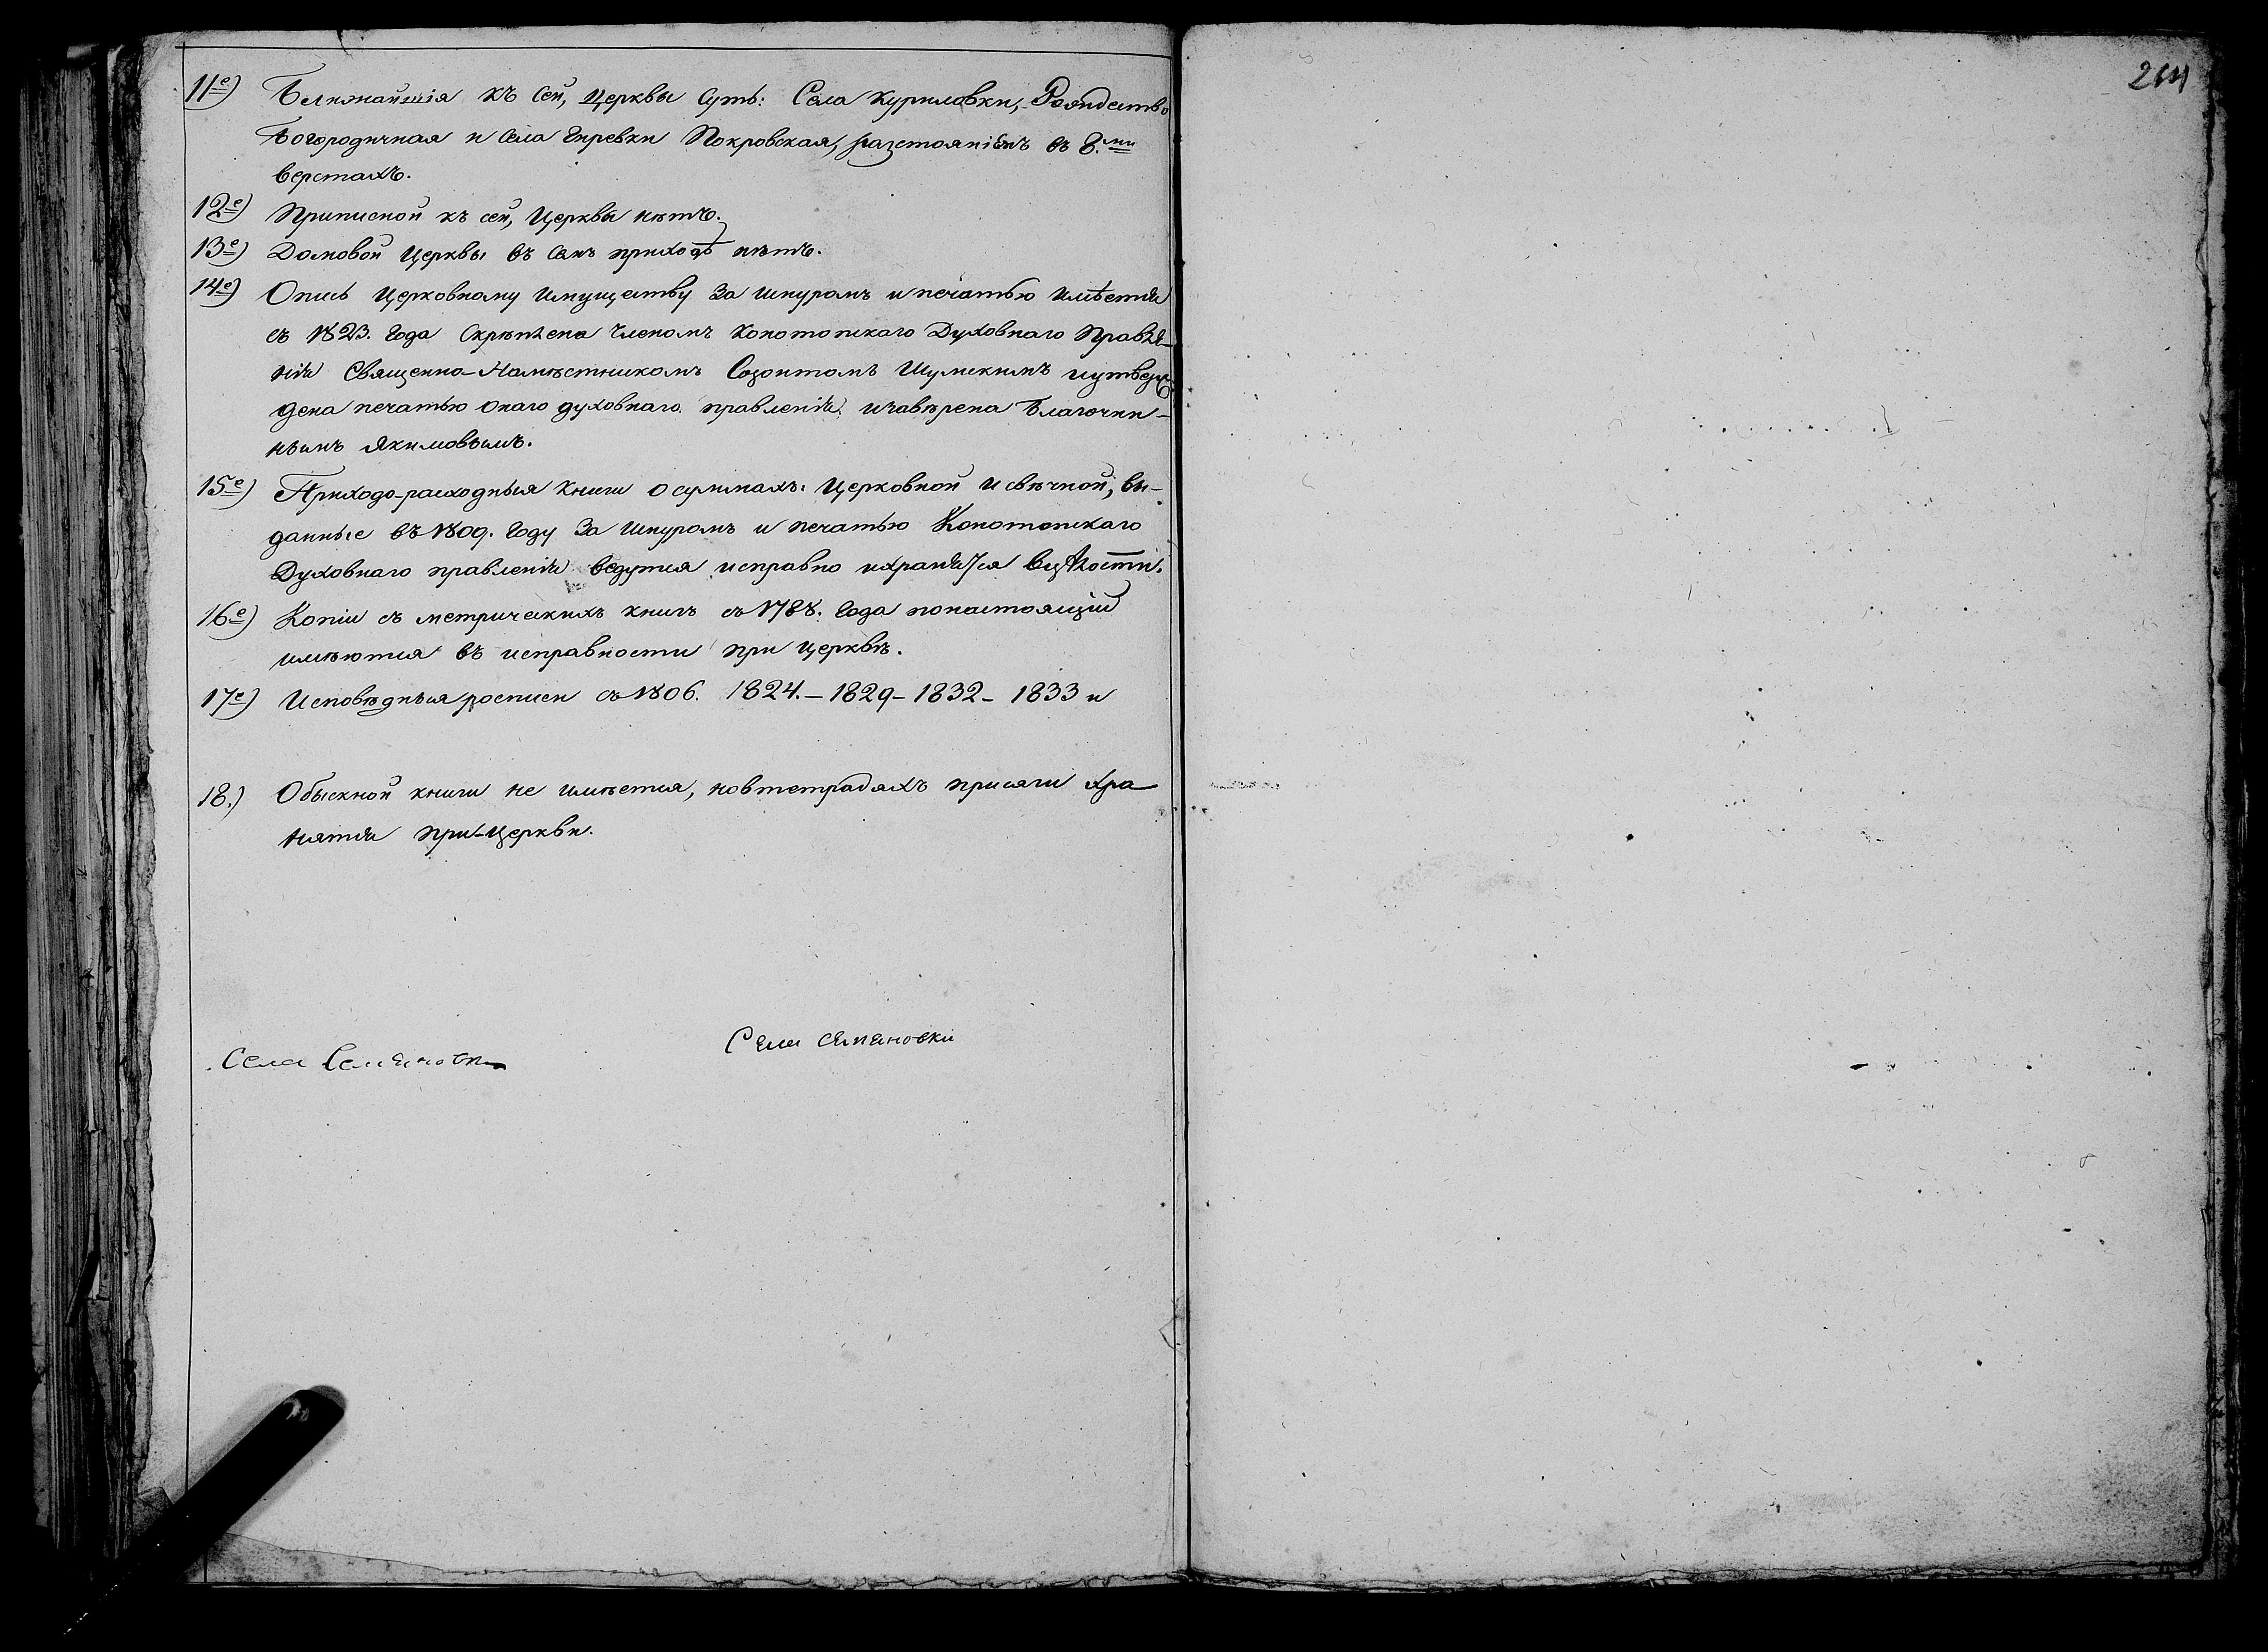 264
11е) Ближайшія къ сей, Церквы суть: Села Куриловки, Рождество
Богородичная и села Гиревки Покровская, разстояніемъ въ 8.ми
верстахъ.
12е) Приписной къ сей, Церквы нѣтъ.
13е) Домовой Церквы въ семъ приходѣ нѣтъ.
14е) Опись Церковному имуществу за шнуромъ и печатью имѣется
съ 1823. Года скрѣплена Членомъ Конотопскаго Духовнаго Правле-
нія Священно-Намѣстникомъ Созонтомъ Шумскимъ и утверж
дена печатью онаго духовнаго правленія, изавѣрена Благочин-
нымъ Якимовымъ.
15е) Приходо-расходныя книги о суммахъ: Церковной и свѣчной, вы-
данные въ 1809. Году за шнуромъ и печатью Конотопскаго
Духовнаго правленія ведутся исправно и хранятся въ цѣлости.
16е) Копіи съ метрическихъ книгъ съ 1788. Года по настоящій
имѣются въ исправности при церквѣ.
17е) Исповѣдныя росписи съ 1806. 1824.- 1829- 1832- 1833 и
18.) Обыскной книги не имѣется, но в тетрадяхъ присяги хра
нятся при-Церкви.
Села Семеновки
Села Семеновки